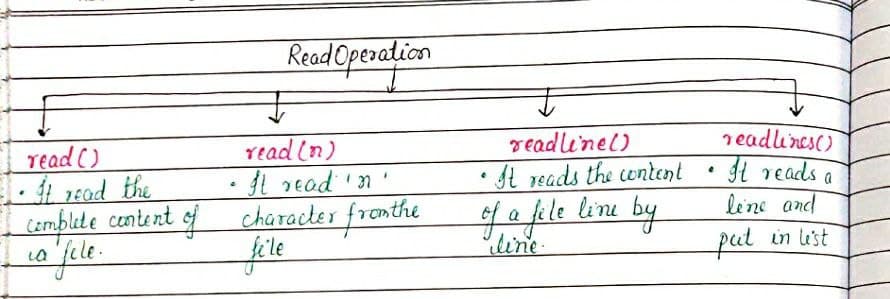 Read Operation
read()
• It read the
complete content of
a file.
read(n)
• It read 'n'
character from the
file
readline()
• It reads the content
of a file line by
line.
readlines()
• It reads a
line and
put in list